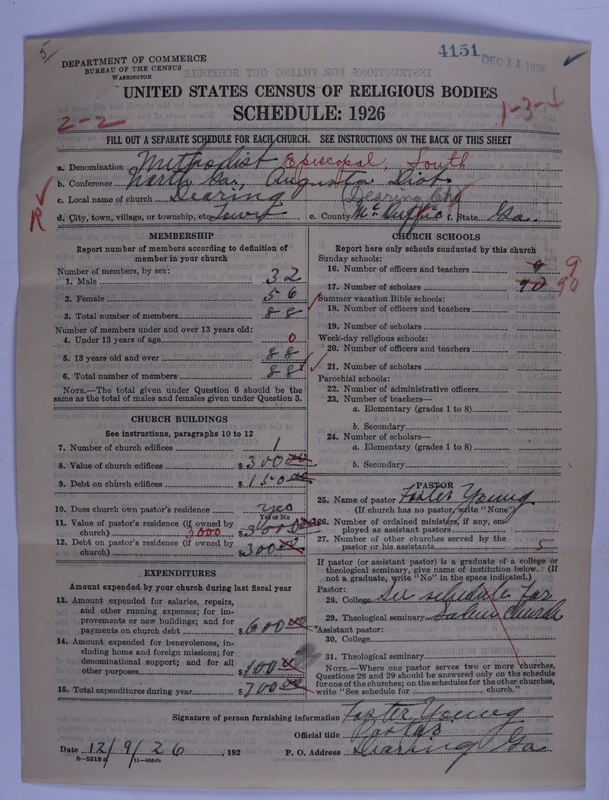 5
4151
DEC 11 1926
DEPARTMENT OF COMMERCE
BUREAU OF THE CENSUS
WASHINGTON
UNITED STATES CENSUS OF RELIGIOUS BODIES
SCHEDULE: 1926
2-2
1-3-1
FILL OUT A SEPARATE SCHEDULE FOR EACH CHURCH. SEE INSTRUCTIONS ON THE BACK OF THIS SHEET
a. Denomination Methodist Episcopal, South
b. Conference North Ga., Augusta Dist
c. Local name of church Dearing Dearing Chg
d. City, town, village, or township, etc. Town e. County McDuffie f. State Ga.
R
MEMBERSHIP
Report number of members according to definition of
member in your church
Number of members, by sex:
1. Male 32
2. Female 56
3. Total number of members 88
Number of members under and over 13 years old:
4. Under 13 years of age 0
5. 13 years old and over 88
6. Total number of members 88
NOTE.—The total given under Question 6 should be
same as the total of males and females given under Question 3.
CHURCH BUILDINGS
See instructions, paragraphs 10 to 12
7. Number of church edifices 1
8. Value of church edifices $3000.00
9. Debt on church edifices $150.00
10. Does church own pastor's residence yes
Yes or No
11. Value of pastor's residence (if owned by
church) 3000 $3000.00
12. Debt on pastor's residence (if owned by
church) $300.00
EXPENDITURES
Amount expended by your church during last fiscal year
13. Amount expended for salaries, repairs,
and other running expenses; for im-
provements or new buildings; and for
payments on church debt $600.00
14. Amount expended for benevolences, in-
cluding home and foreign missions; for
denominational support; and for all
other purposes $100.00
15. Total expenditures during year $700.00
CHURCH SCHOOLS
Report here only schools conducted by this church
Sunday schools:
16. Number of officers and teachers 9 9
17. Number of scholars 90 90
Summer vacation Bible schools:
18. Number of officers and teachers
19. Number of scholars
Week-day religious schools:
20. Number of officers and teachers
21. Number of scholars
Parochial schools:
22. Number of administrative officers
23. Number of teachers—
a. Elementary (grades 1 to 8)
b. Secondary
24. Number of scholars—
a. Elementary (grades 1 to 8)
b. Secondary
PASTOR
25. Name of pastor Foster Young
(If church has no pastor, write "None")
26. Number of ordained ministers, if any, em-
ployed as assistant pastors
27. Number of other churches served by the
pastor or his assistants 5
If pastor (or assistant pastor) is a graduate of a college or
theological seminary, give name of institution below. (If
not a graduate, write "No" in the space indicated.)
Pastor:
28. College See schedule for
29. Theological seminary Salem Church
Assistant pastor:
30. College
31. Theological seminary
NOTE.—Where one pastor serves two or more churches,
Questions 28 and 29 should be answered only on the schedule
for one of the churches; on the schedules for the other churches,
write "See schedule for church."
Signature of person furnishing information Foster Young
Official title Pastor
Date 12/9/26, 192 P. O. Address Dearing Ga